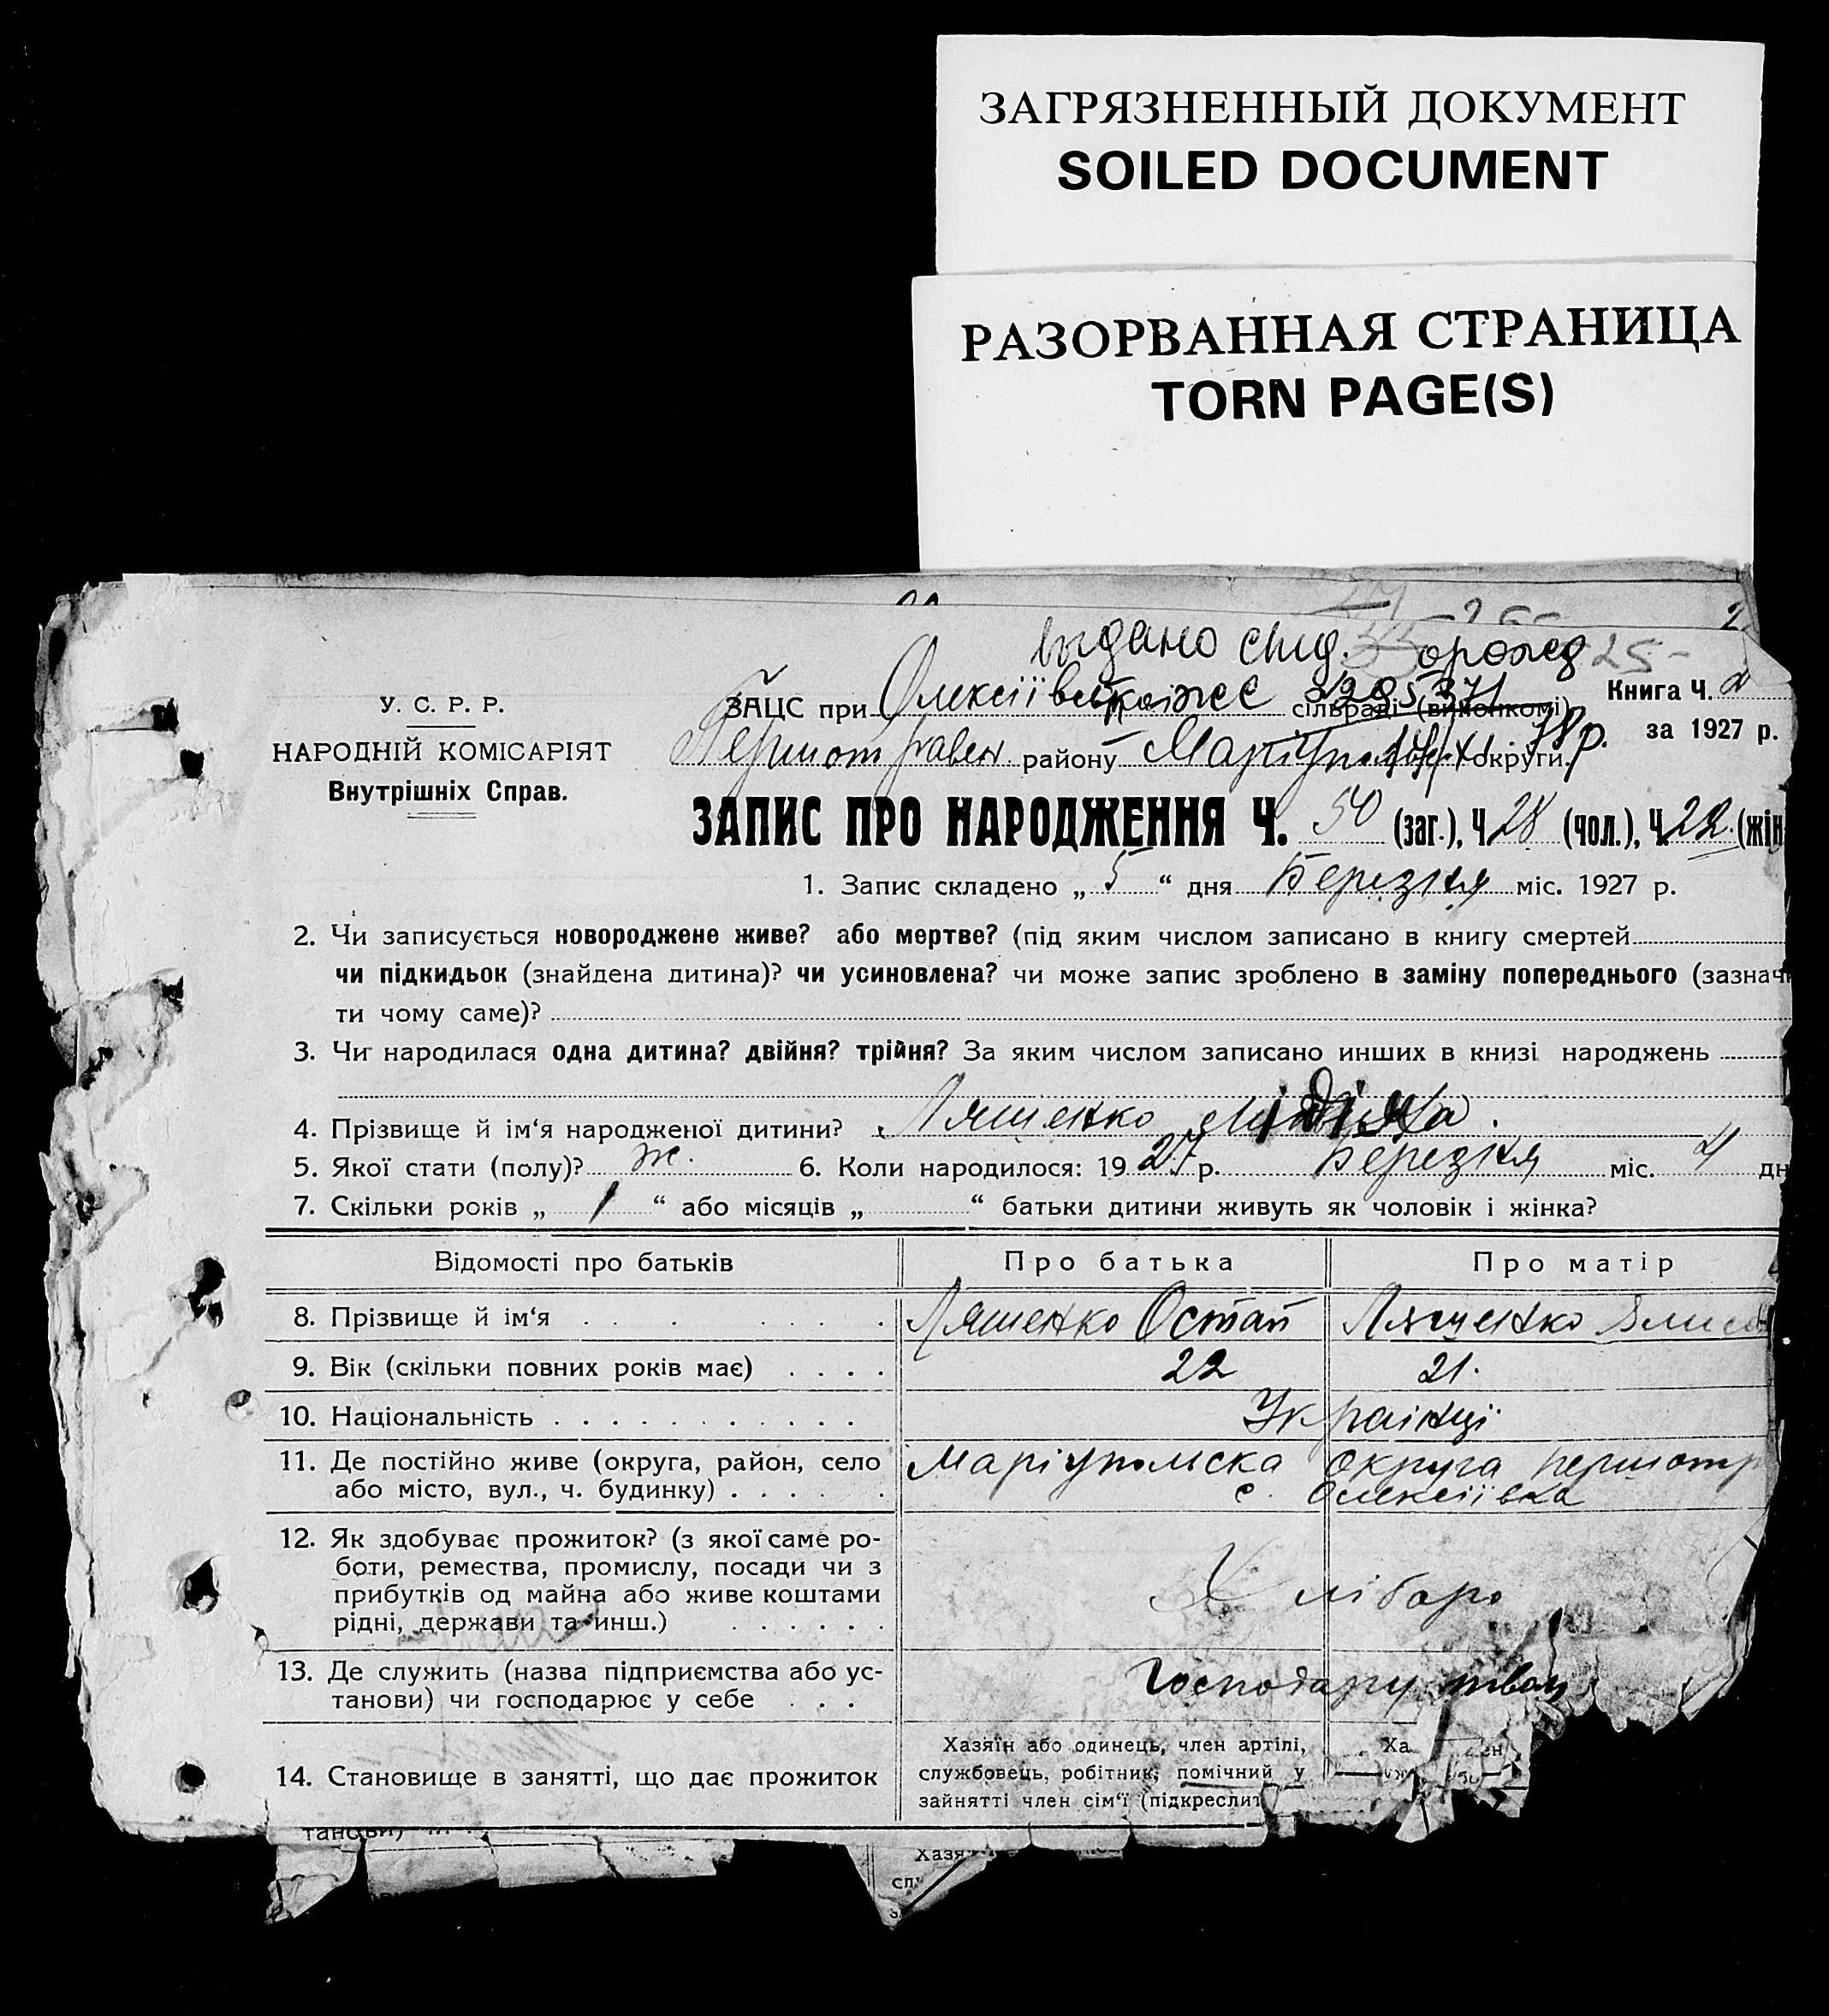 ЗАГРЯЗНЕННЫЙ ДОКУМЕНТ
SOILED DOCUMENT
РАЗОРВАННАЯ СТРАНИЦА
TORN PAGE(S)
выдано
25-
У. С. Р. Р.
НАРОДНІЙ КОМІСАРІЯТ
Внутрішніх Справ.
ЗАЦС при сільраді (виконкомі)
Книга Ч. 2
за 1927 р.
району округи
78 р.
ЗАПИС ПРО НАРОДЖЕННЯ Ч. 50 (заг.), Ч. 28 (чол.), Ч. 22. (жін
1. Запис складено „ 5 “ дня Березня міс. 1927 р.
2. Чи записується новороджене живе? або мертве? (під яким числом записано в книгу смертей
чи підкидьок (знайдена дитина)? чи усиновлена? чи може запис зроблено в заміну попереднього (зазначи
ти чому саме)?
3. Чи народилася одна дитина? двійня? трійня? За яким числом записано инших в книзі народжень
4. Прізвище й ім‘я народженої дитини? Ляшенко
5. Якої стати (полу)? ж. 6. Коли народилося: 1927 р. Березня міс. 4 дн
7. Скільки років „ 1 “ або місяців „ “ батьки дитини живуть як чоловік і жінка?
Відомості про батьків Про батька Про матір
8. Прізвище й ім‘я Ляшенко Остап Ляшенко
9. Вік (скільки повних років має) 22 21.
10. Національність Українці
11. Де постійно живе (округа, район, село Маріупольска округа першотр
або місто, вул., ч. будинку) с. Олексіївка
12. Як здобуває прожиток? (з якої саме ро-
боти, ремества, промислу, посади чи з
прибутків од майна або живе коштами Хлібаро
рідні, держави та инш.)
13. Де служить (назва підприємства або ус-
танови) чи господарює у себе
Хазяїн або одинець, член артілі,
14. Становище в занятті, що дає прожиток службовець, робітник, помічний у
зайнятті член сім‘ї (підкреслит
танови)
Хазя